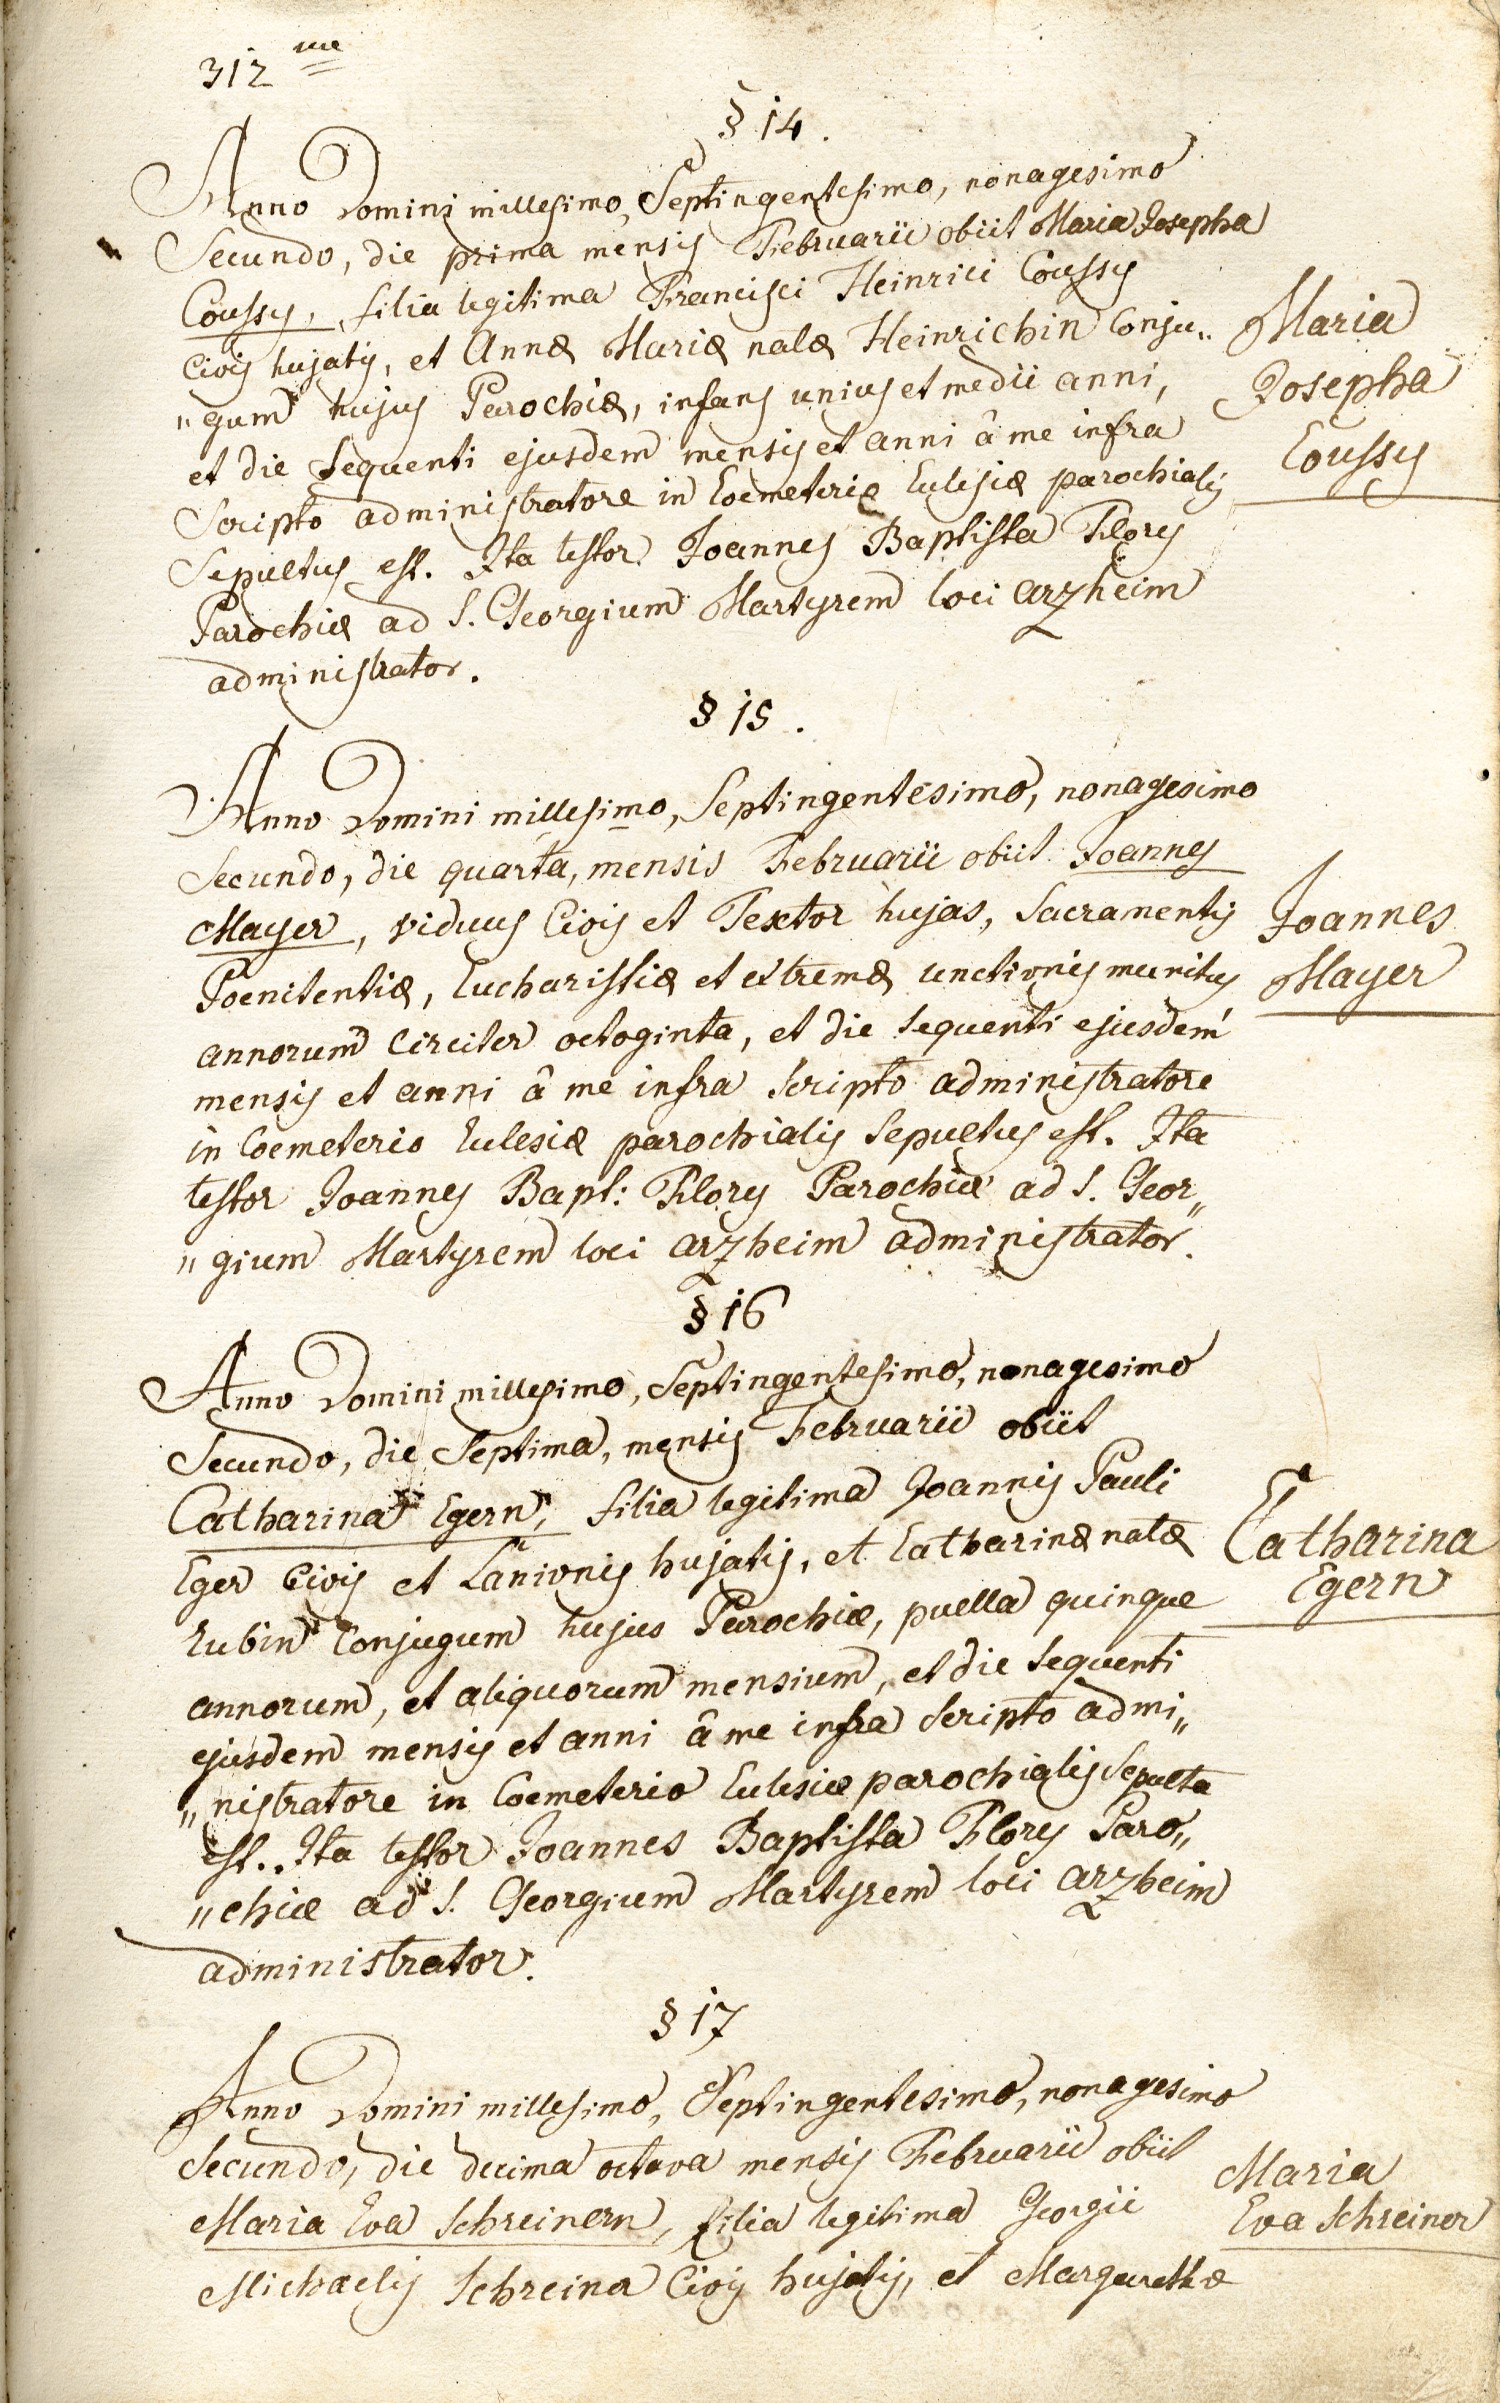 312 me
§ 14.
Anno Domini millesimo, Septingentesimo, nonagesimo
Secundo, die prima mensis Februarii obiit Maria Josepha
Coussy, filia legitima Francisci Heinrici Coussy
Civis hujatis, et Annæ Mariæ natæ Heinrichin Conju„
„gum hujus Parochiæ, infans unius et medii anni,
et die sequenti ejusdem mensis et anni â me infra
Scripto administratore in Coemeterio Eclesiæ parochialis
Sepultus est. Ita testor Joannes Baptista Flory
Parochiæ ad S. Georgium Martyrem loci arzheim
administrator.
Maria
Josepha
Coussy
§ 15.
Anno Domini millesimo, Septingentesimo, nonagesimo
Secundo, die quarta, mensis Februarii obiit Joannes
Mayer, viduus Civis et Textor hujas, Sacramentis
Poenitentiæ, Eucharistiæ et extremæ unctionis munitus
annorum circiter octoginta, et die sequenti ejusdem
mensis et anni â me infra scripto administratore
in Coemeterio Eclesiæ parochialis Sepultus est. Ita
testor Joannes Bapt: Flory Parochiæ ad S. Geor„
„gium Martyrem loci arzheim administrator.
Joannes
Mayer
§ 16
Anno Domini millesimo, Septingentesimo, nonagesimo
Secundo, die Septima, mensis Februarii obiit
Catharina Egern, filia legitima Joannis Pauli
Eger Civis et Lanionis hujatis, et Catharinæ natæ
Rubin Conjugum hujus Parochiæ, puella quinque
annorum, et aliquorum mensium, et die sequenti
ejusdem mensis et anni â me infra scripto admi„
„nistratore in Coemeterio Eclesiæ parochialis Sepulta
est. Ita testor Joannes Baptista Flory Paro„
„chiæ ad S. Georgium Martyrem loci arzheim
administrator.
Catharina
Egern
§ 17
Anno Domini millesimo, Septingentesimo, nonagesimo
Secundo, die decima octava mensis Februarii obiit
Maria Eva Schreinern, filia legitima Georgii
Michaelis Schreiner Civis hujatis, et Margarethæ
Maria
Eva Schreiner